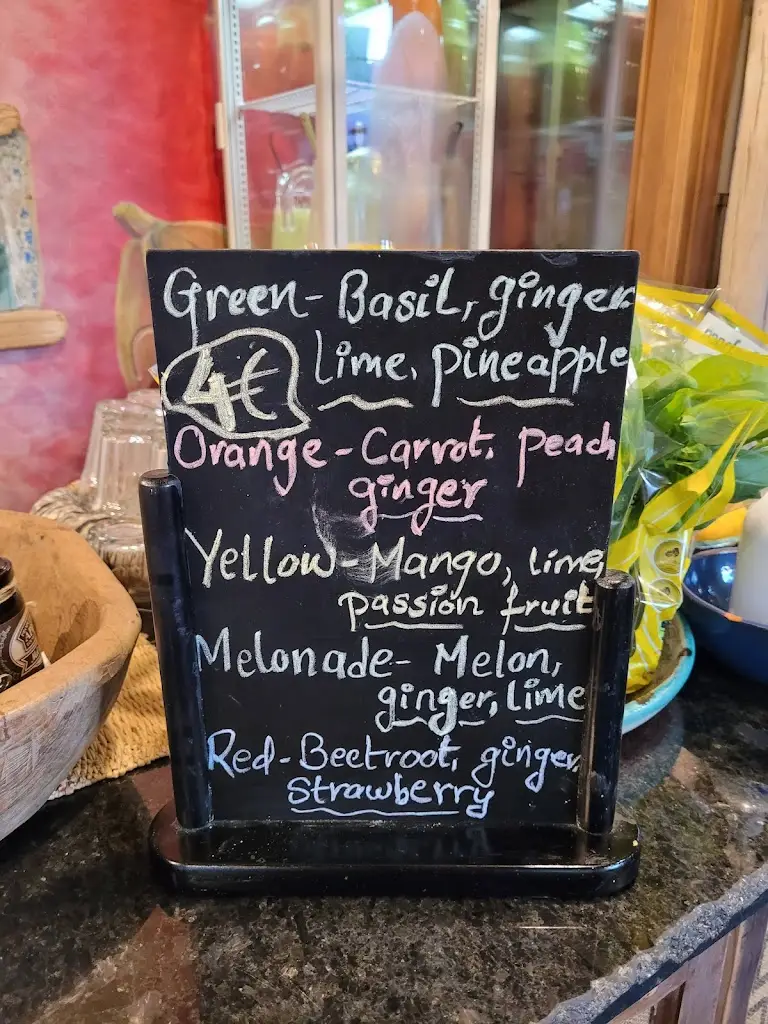 Green - Basil, ginger
4€ Lime, pineapple
Orange - Carrot, Peach
ginger
Yellow - Mango, lime,
passion fruit
Melonade - Melon,
ginger, lime
Red - Beetroot, ginger,
Strawberry